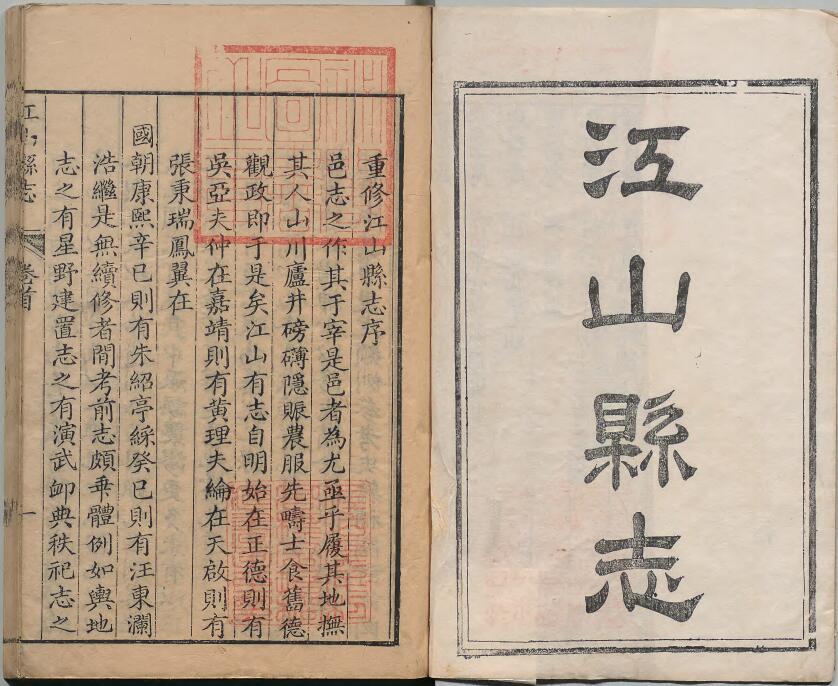 江山縣志
重修江山縣志序
邑志之作其于宰是邑者為尤亟乎履其地撫
其人山川廬井磅礴隱賑農服先疇士食舊德
觀政即于是矣江山有志自明始在正德則有
吳亞夫仲在嘉靖則有黃理夫綸在天啟則有
張秉瑞鳳翼在
國朝康熙辛巳則有朱紹亭綵癸巳則有汪東瀾
浩繼是無續修者閒考前志頗乖體例如輿地
志之有星野建置志之有演武卹典秩祀志之
江山縣志 卷首 一